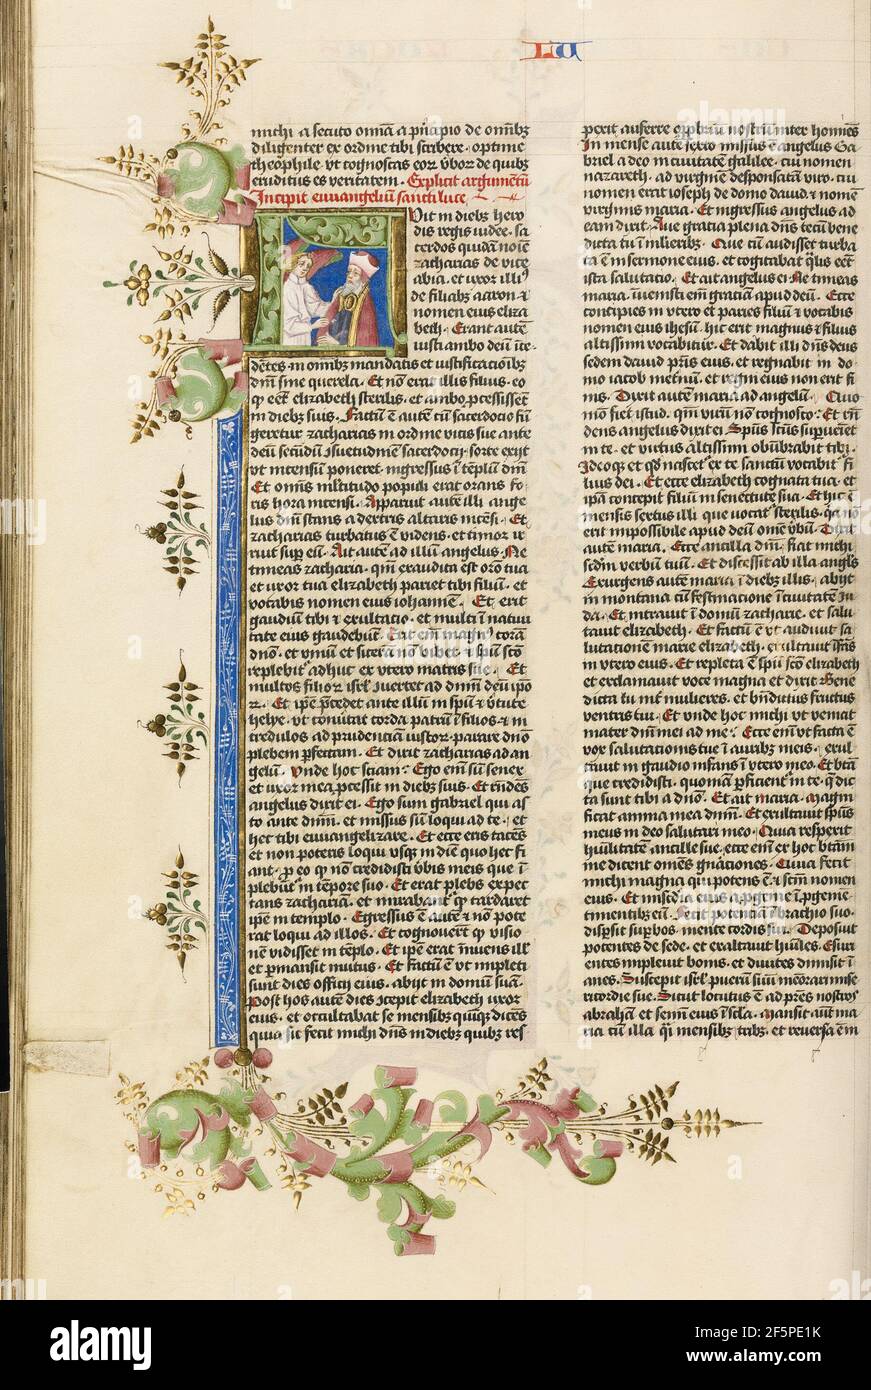 LU
michi a secuto omīa a pͥncipio de omībꝫ
diligenter ex ordine tibi scribere · optime
theophile · vt cognoscas eorꝫ v̓borꝫ de quibꝫ
eruditus es veritatem · Explicit argumentū
Incipit euuangeliū sancti luce ·
Fuit in diebꝫ hero
dis regis iudee · sa
cerdos quidā noīe
zacharias de vice
abia · et uxor illiꝰ
de filiabꝫ aaron · ⁊
nomen eius eliza
beth · Erant autē
iusti ambo deū īce
dētes · in omībꝫ mandatis et iustificatiōibꝫ
dn̄i sine querela · Et nō erat illis filius · eo
ꝙ eēt elizabeth sterilis · et ambo ꝓcessissēt
in diebꝫ suis · Factū ē autē cū sacerdotio fū
geretur zacharias in ordine vicis sue ante
deū · secūdū ꝯsuetudinē sacerdocij · sorte exijt
vt incensū poneret · ingressus ī tēplū dn̄i
Et omīs mltitudo populi erat orans fo
ris hora incensi · Apparuit autē illi ange
lus dn̄i stans a dextris altaris incēsi · Et
zacharias turbatus ē videns · et timor ir
ruit suꝑ eū · Ait autē ad illū angelus · Ne
timeas zacharia · qm̄ exaudita est orō tua
et uxor tua elizabeth pariet tibi filiū · et
vocabis nomen eius iohannē · Et erit
gaudiū tibi ⁊ exultatio · et multi ī natiui
tate eius gaudebūt · Erit em̄ magnꝰ corā
dn̄o · et vinū et siceram nō bibet · ⁊ spū scō
replebitᷣ adhuc ex vtero matris sue · Et
multos filiorꝫ isrl̄ ꝯuertet ad dn̄m deū ipo
rꝫ · Et ip̄e p̄cedet ante illū in spū ⁊ v̓tute
helye · vt cōuertat corda patrū ī filios · ⁊ in
credulos ad prudentiam iustorꝫ · parare dn̄o
plebem ꝑfectam · Et dixit zacharias ad an
gelū · Vnde hoc sciam · Ego em̄ sū senex
et uxor mea ꝓcessit in diebꝫ suis · Et rn̄des
angelus dixit ei · Ego sum gabriel qui as
to ante deū · et missus sū loqui ad te · et
hec tibi euuangelizare · Et ecce eris tacēs
et nō poteris loqui vsqꝫ in diē quo hec fi
ant · ꝓ eo ꝙ nō credidisti v̓bis meis que ī
plebūtᷣ in tēpore suo · Et erat plebs expec
tans zachariam · et mirabantᷣ ꝙ tardaret
ip̄e in templo · Egressus ē autē ⁊ nō pote
rat loqui ad illos · Et cognouerūt ꝙ visio
nem vidisset in tēplo · Et ip̄e erat īnuens ill̓
et ꝑmansit mutus · Et factū ē vt impleti
sunt dies officij eius · abijt in domū suā ·
Post hos autē dies ꝯcepit elizabeth uxor
eius · et occultabat se mensibꝫ quīqꝫ dicēs
quia sic fecit michi dn̄s in diebꝫ quibꝫ res
pexit auferre opprobriū nostrū inter homīes
In mense autē sexto missus ē angelus Ga
briel a deo in ciuitatē galilee · cui nomen
nazareth · ad virginē desponsatam viro · cui
nomen erat ioseph de domo dauid · ⁊ nomē
virginis maria · Et ingressus angelus ad
eam dixit · Aue gratia plena dn̄s tecū bene
dicta tu ī mulieribꝫ · Que cū audisset turba
ta ē in sermone eius · et cogitabat qͣlis eēt
ista salutatio · Et ait angelus ei · Ne timeas
maria · īuenisti em̄ gratiam apud deū · Ecce
concipies in vtero et paries filiū ⁊ vocabis
nomen eius ihesū · hic erit magnus ⁊ filius
altissimi vocabiturᷣ · Et dabit illi dn̄s deus
sedem dauid pr̄is eius · et regnabit in do
mo iacob in et̓nū · et regni eius non erit fi
nis · Dixit autē maria ad angelū · Quo
mō fiet istud · qm̄ virū nō cognosco · Et rn̄
dens angelus dixit ei · Spūs scūs suꝑueniet
in te · et virtus altissimi obūbrabit tibi ·
Ideoqꝫ et qd̓ nascetᷣ ex te sanctū vocabitᷣ fi
lius dei · Et ecce elizabeth cognata tua · et
ip̄a concepit filiū in senectute sua · Et hic ē
mensis sextus illi que vocatᷣ sterilis · qͥa nō
erit impossibile apud deū om̄e v̓bū · Dixit
autē maria · Ecce ancilla dn̄i · fiat michi
scd̓m verbū tuū · Et discessit ab illa angl̓s
Exurgens autē maria ī diebꝫ illis · abijt
in montana cū festinacione ī ciuitatē iu
da · Et intrauit ī domū zacharie · et salu
tauit elizabeth · Et factū ē vt audiuit sa
lutationē marie elizabeth · exultauit īfās
in vtero eius · Et repleta ē spū scō elizabeth
et exclamauit voce magna et dixit · Bene
dicta tu inť mulieres · et bn̄dictus fructus
ventris tui · Et vnde hoc michi vt veniat
mater dn̄i mei ad me · Ecce em̄ vt facta ē
vox salutationis tue ī auribꝫ meis · exul
tauit in gaudio infans ī vtero meo · Et btā
que credidisti · quoniam ꝑficientᷣ in te · q̄ dic
ta sunt tibi a dn̄o · Et ait maria · Magni
ficat anima mea dn̄m · Et exultauit spūs
meus in deo salutari meo · Quia respexit
hūilitatē ancille sue · ecce em̄ ex hoc btām
me dicent omēs gn̄ationes · Quia fecit
michi magna qui potens ē · ⁊ scm̄ nomen
eius · Et mīa eius a ꝓgenie ī ꝓgenie
timentibꝫ eū · Fecit potenciā ī brachio suo ·
disꝑsit suꝑbos · mente cordis sui · Deposuit
potentes de sede · et exaltauit hūiles · Esuri
entes impleuit bonis · et diuites dimisit ī
anes · Suscepit isrl̄ puerū suū · mēorari mise
ricordie sue · Sicut locutus ē ad pr̄es nostros
abraham et semī eius ī scl̄a · Mansit aut̄ ma
ria cū illa qͣsi mensibꝫ tribꝫ · et reuersa ē in
alamy
alamy
Image ID: 2F5PE1K
www.alamy.com